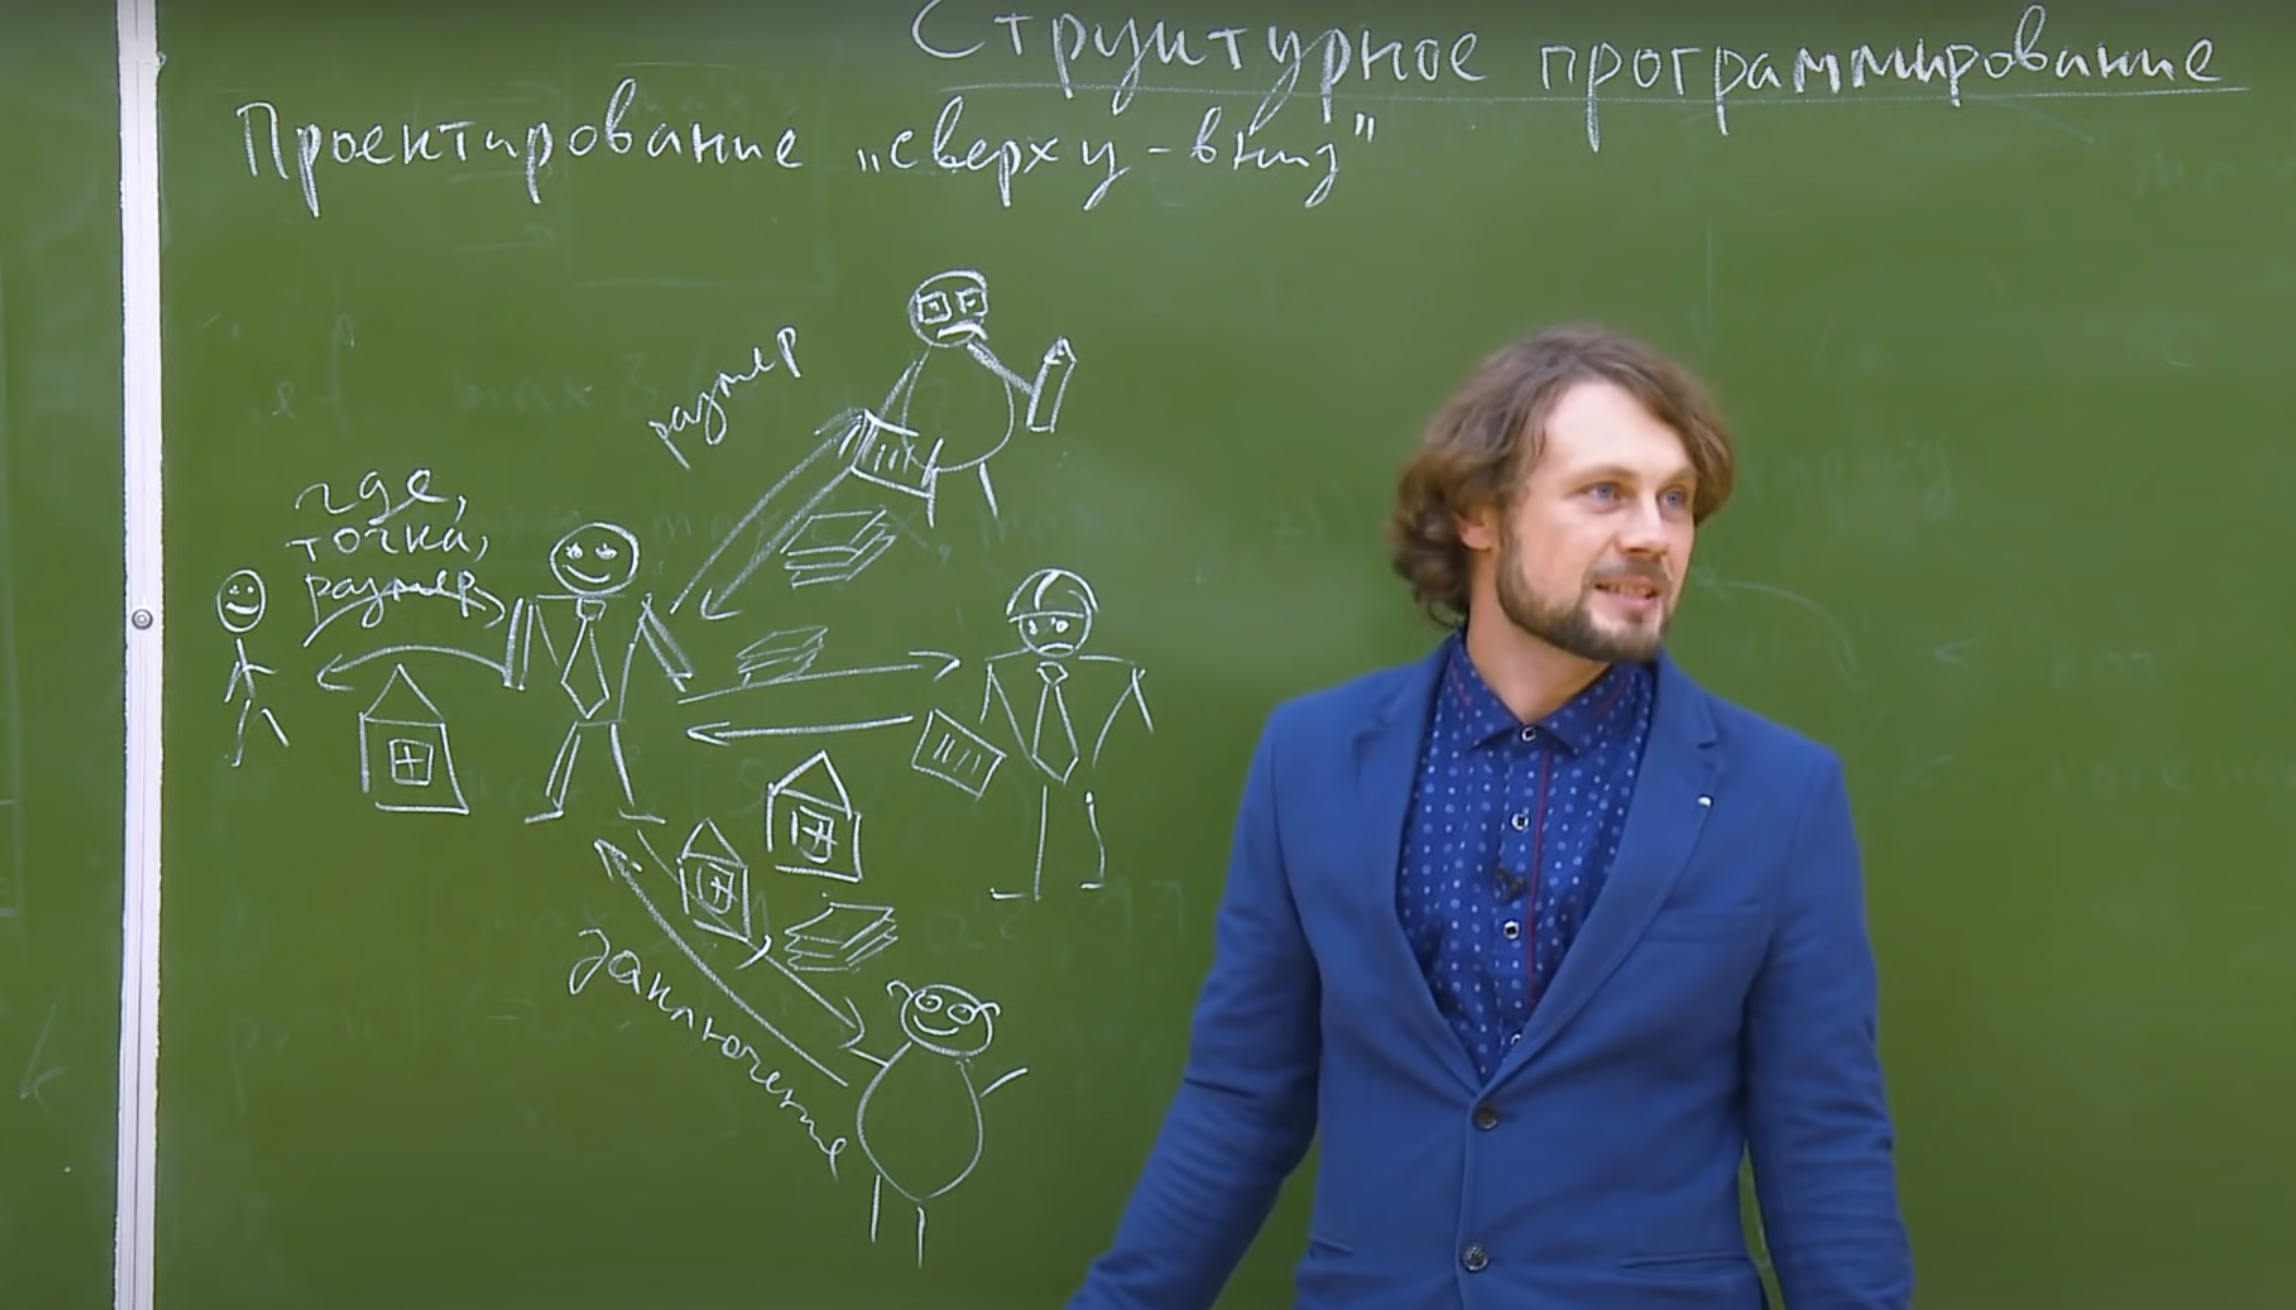 Структурное программирование
Проектирование „сверху-вниз"
размер
где,
точка,
размер
заключение